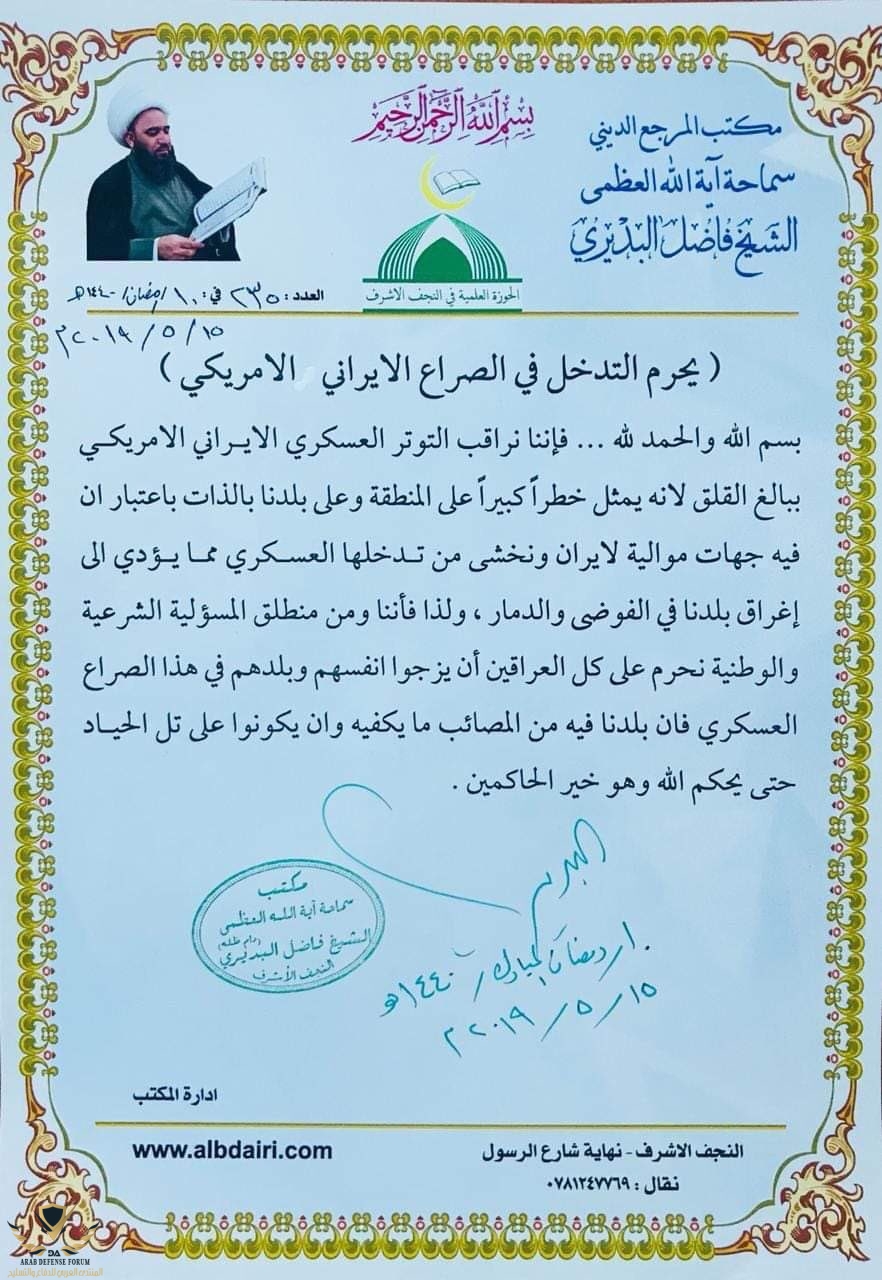 بِسْمِ اللَّهِ الرَّحْمَنِ الرَّحِيمِ
مكتب المرجع الديني
سماحة آية الله العظمى
الشيخ فاضل البديري
الحوزة العلمية في النجف الاشرف
العدد : ٢٣٥ في : ١٠ / رمضان / ١٤٤٠ هـ
١٥ / ٥ / ٢٠١٩ م
( يحرم التدخل في الصراع الايراني الامريكي )
بسم الله والحمد لله ... فإننا نراقب التوتر العسكري الايراني الامريكي
ببالغ القلق لانه يمثل خطراً كبيراً على المنطقة وعلى بلدنا بالذات باعتبار ان
فيه جهات موالية لايران ونخشى من تدخلها العسكري مما يؤدي الى
إغراق بلدنا في الفوضى والدمار ، ولذا فأننا ومن منطلق المسؤلية الشرعية
والوطنية نحرم على كل العراقين أن يزجوا انفسهم وبلدهم في هذا الصراع
العسكري فان بلدنا فيه من المصائب ما يكفيه وان يكونوا على تل الحياد
حتى يحكم الله وهو خير الحاكمين .
البديري
١٠ / رمضان المبارك / ١٤٤٠ هـ
١٥ / ٥ / ٢٠١٩ م
مكتب
سماحة آية الله العظمى
الشيخ فاضل البديري (دام ظله)
النجف الأشرف
ادارة المكتب
النجف الاشرف - نهاية شارع الرسول
نقال : ٠٧٨١٢٤٧٧٦٩
www.albdairi.com
DA
ARAB DEFENSE FORUM
المنتدى العربي للدفاع والتسليح